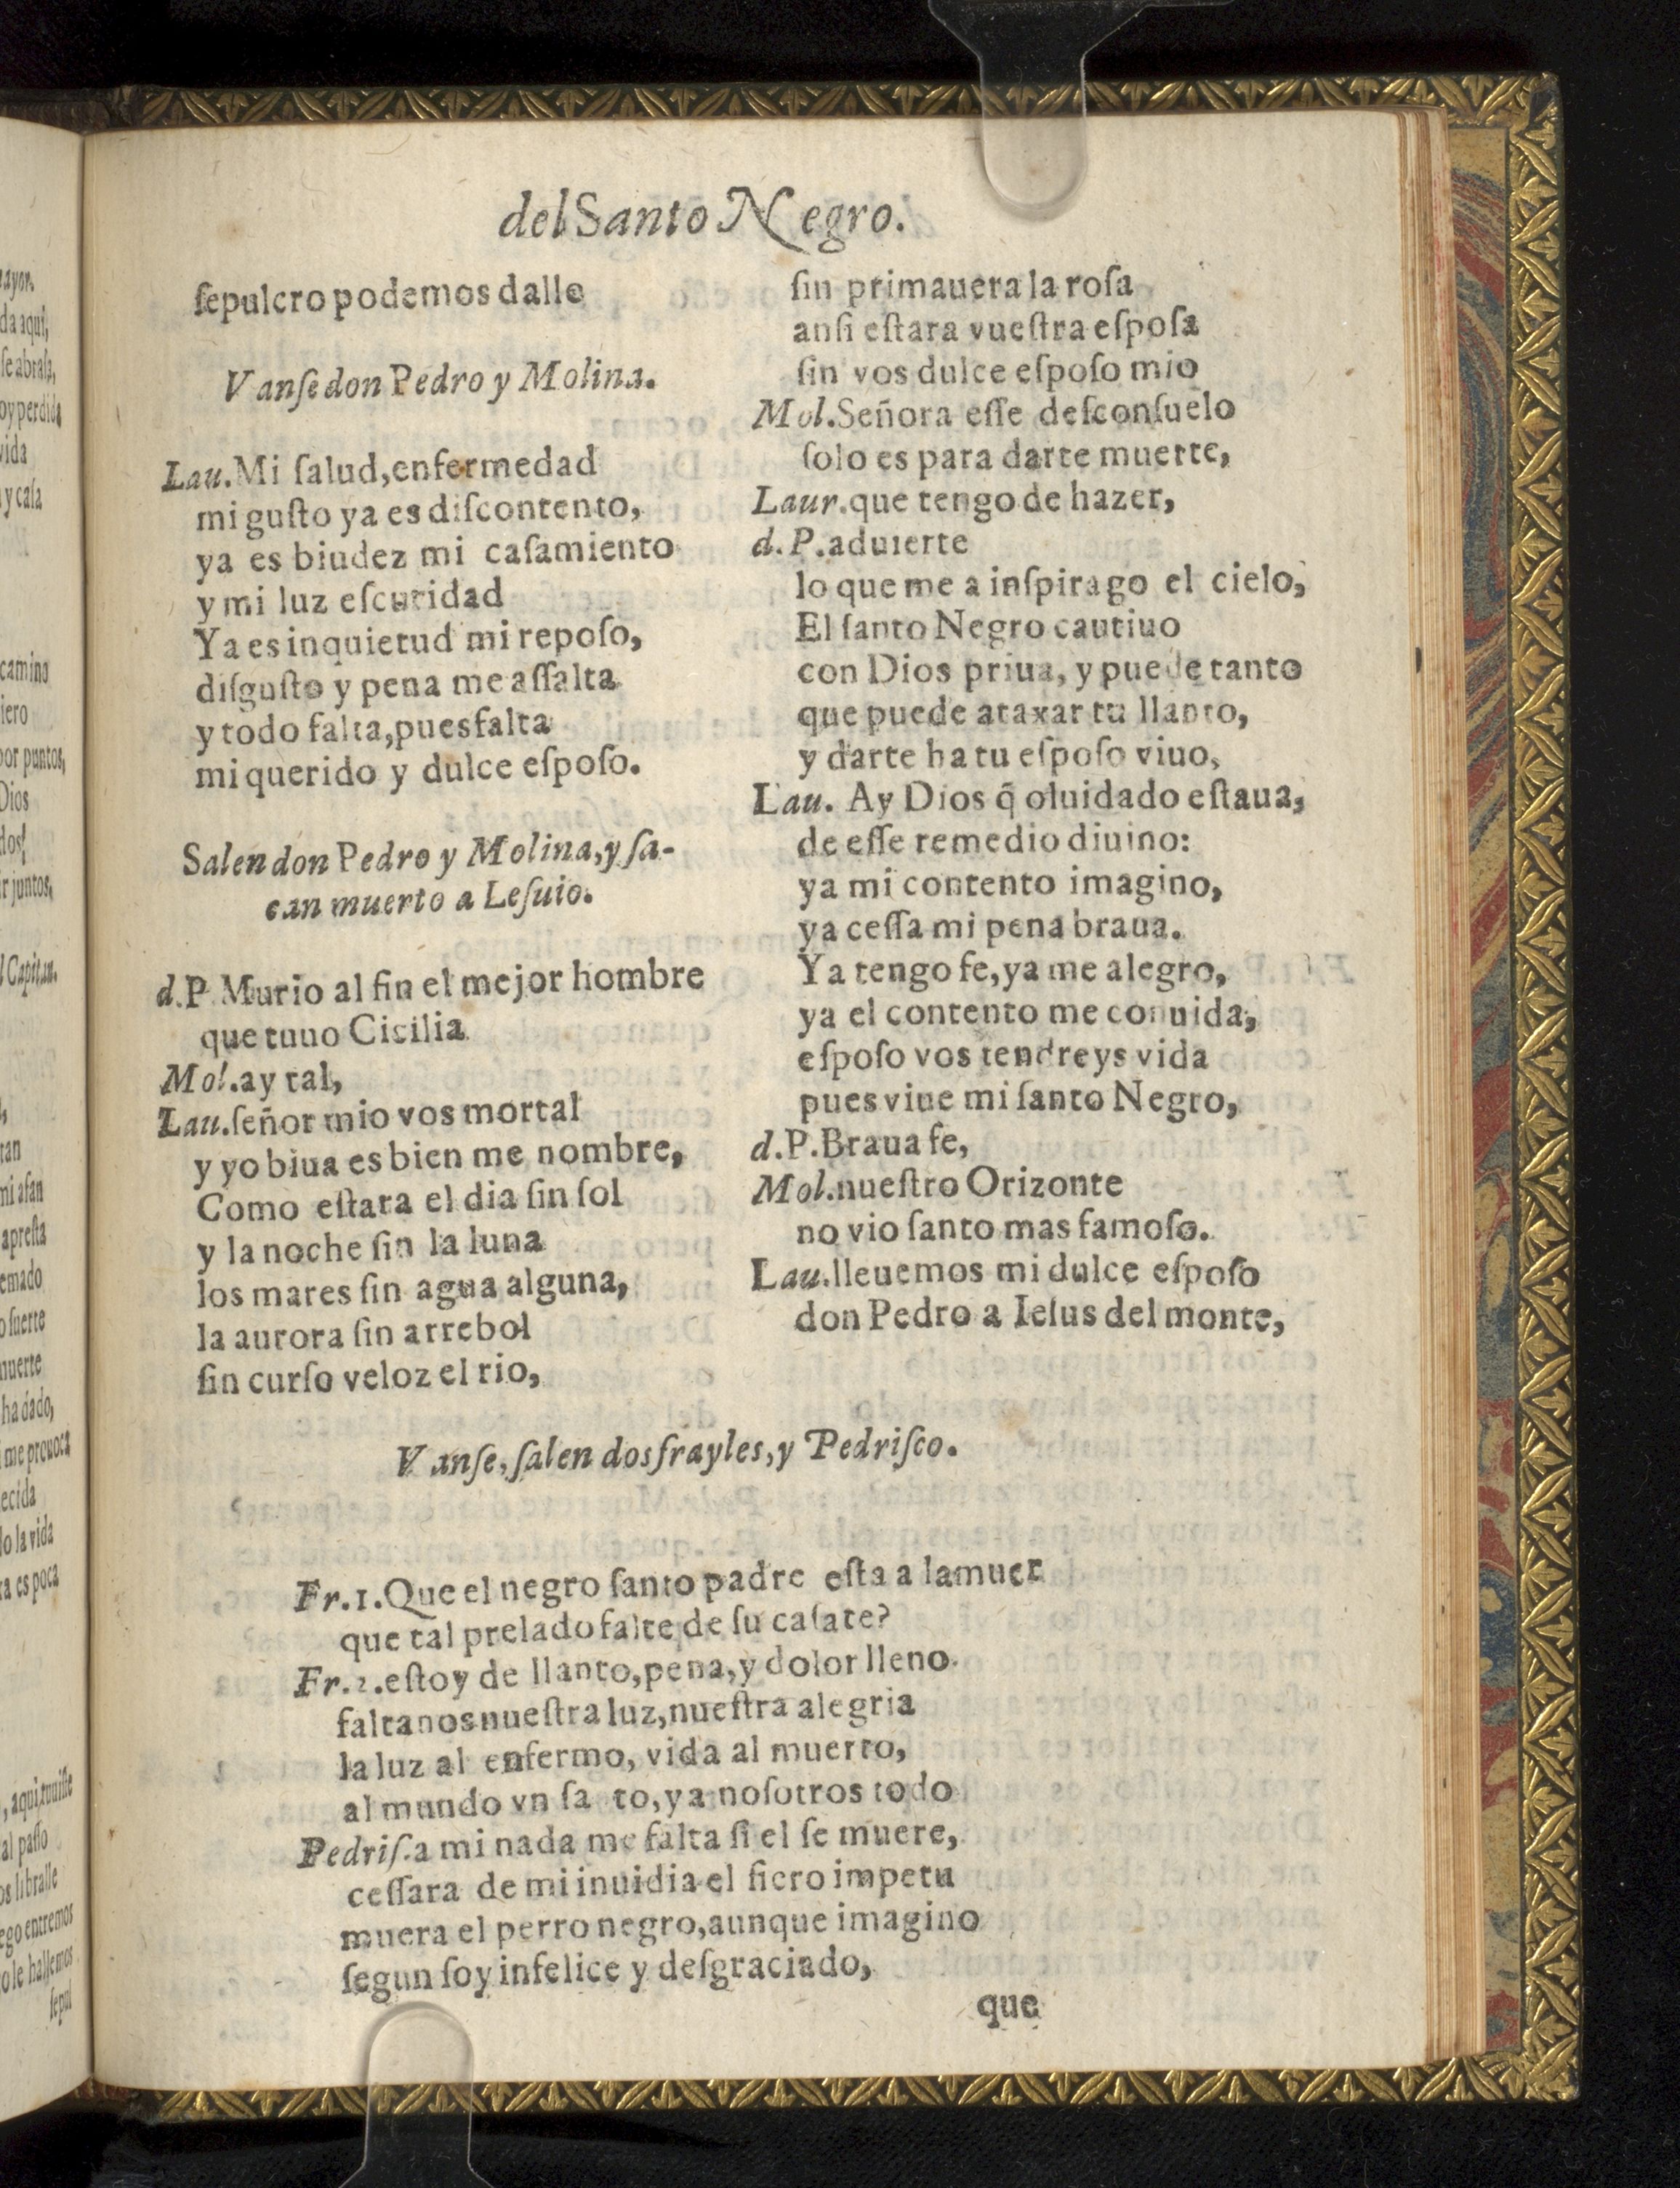 del Santo Negro.
ſepulcro podemos dalle
Vanſe don Pedro y Molina.
Lau. Mi ſalud, enfermedad
mi guſto ya es diſcontento,
ya es biudez mi caſamiento
y mi luz eſcuridad
Ya es inquietud mi repoſo,
diſguſto y pena me aſſalta
y todo falta, pues falta
mi querido y dulce eſpoſo.
Salen don Pedro y Molina, y ſa-
can muerto a Leſuio.
d.P. Murio al fin el mejor hombre
que tuuo Cicilia
Mol. ay tal,
Lau. ſeñor mio vos mortal
y yo biua es bien me nombre,
Como eſtara el dia ſin ſol
y la noche ſin la luna
los mares ſin agua alguna,
la aurora ſin arrebol
ſin curſo veloz el rio,
ſin primauera la roſa
anſi eſtara vueſtra eſpoſa
ſin vos dulce eſpoſo mio
Mol. Señora eſſe deſconſuelo
ſolo es para darte muerte,
Laur. que tengo de hazer,
d. P. aduierte
lo que me a inſpirago el cielo,
El ſanto Negro cautiuo
con Dios priua, y puede tanto
que puede ataxar tu llanto,
y darte ha tu eſpoſo viuo,
Lau. Ay Dios q̃ oluidado eſtaua,
de eſſe remedio diuino:
ya mi contento imagino,
ya ceſſa mi pena braua.
Ya tengo fe, ya me alegro,
ya el contento me conuida,
eſpoſo vos tendreys vida
pues viue mi ſanto Negro,
d.P. Braua fe,
Mol. nueſtro Orizonte
no vio ſanto mas famoſo.
Lau. lleuemos mi dulce eſpoſo
don Pedro a Ieſus del monte,
Vanſe, ſalen dos frayles, y Pedriſco.
Fr.1. Que el negro ſanto padre eſta a la muer
que tal prelado falte de ſu caſa te?
Fr.2. eſtoy de llanto, pena, y dolor lleno
faltanos nueſtra luz, nueſtra alegria
la luz al enfermo, vida al muerto,
al mundo vn ſa to, y a noſotros todo
Pedriſ. a mi nada me falta ſi el ſe muere,
ceſſara de mi inuidia el fiero impetu
muera el perro negro, aunque imagino
ſegun ſoy infelice y deſgraciado,
que